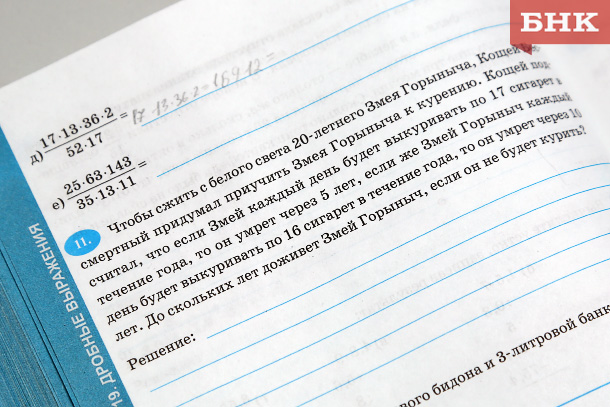 БНК
д) 17·13·36·2 / 52·17 = 17·13·36·2 =
е) 25·63·143 / 35·13·11 =
II. Чтобы сжить с белого света 20-летнего Змея Горыныча, Кощей Бес-
смертный придумал приучить Змея Горыныча к курению. Кощей под-
считал, что если Змей каждый день будет выкуривать по 17 сигарет в
течение года, то он умрет через 5 лет, если же Змей Горыныч каждый
день будет выкуривать по 16 сигарет в течение года, то он умрет через 10
лет. До скольких лет доживет Змей Горыныч, если он не будет курить?
Решение:
19. ДРОБНЫЕ ВЫРАЖЕНИЯ
вого бидона и 3-литровой банк